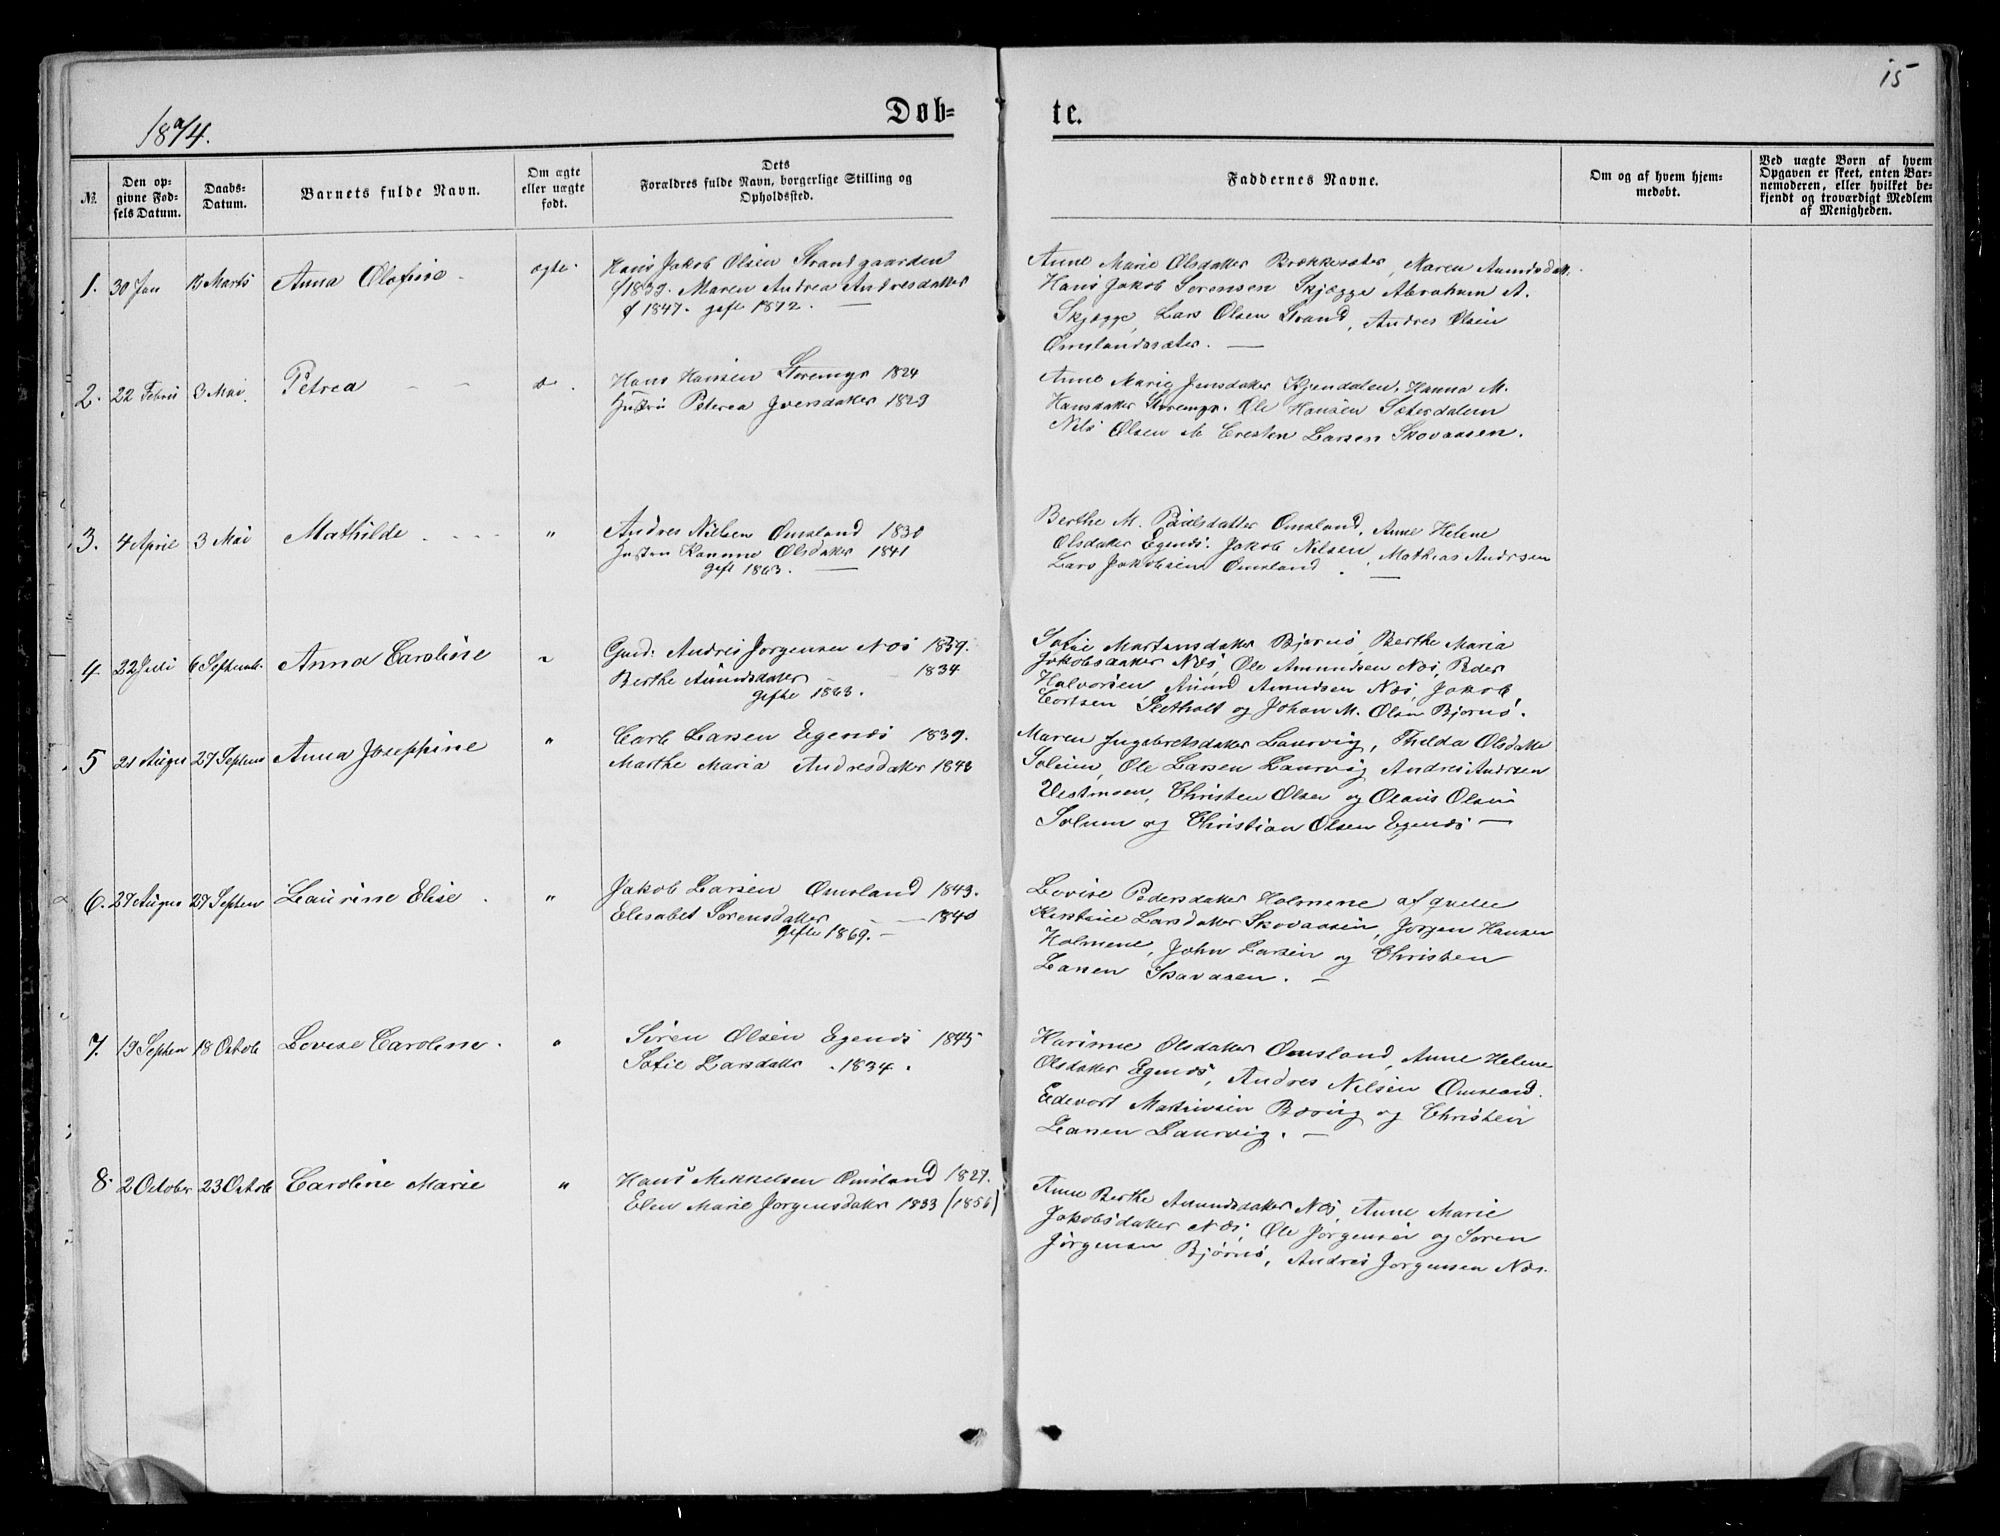 15
1874.
Døb-
te.
№.
Den op-
givne Fød-
sels Datum.
Daabs-
Datum.
Barnets fulde Navn.
Om ægte
eller uægte
født.
Dets
Forældres fulde Navn, borgerlige Stilling og
Opholdssted.
Faddernes Navne.
Om og af hvem hjem-
medøbt.
Ved uægte Børn af hvem
Opgaven er skeet, enten Bar-
nemoderen, eller hvilket be-
kjendt og troværdigt Medlem
af Menigheden.
1. 30 Jan Marts Anna Olafine ægte
Hans Jakob Olsen Strandgaarden
f 1839. Maren Andrea Andresdatter
f 1847. gift 1872.
Anne Marie Olsdatter Brækkesæter, Maren Amundsdatr.
Hans Jakob Sørensen Skjægge Abraham A.
Skjægge, Lars Olsen Strand, Andres Olsen
Omslandssæter.
2. 22 Febru 3 Mai Petrea do.
Hans Hansen Storemyr 1824
Hustru Peterea Iversdatter 1829
Anne Marie Jensdatter Kjendalen, Hanna M.
Hansdatter Storemyr. Ole Hansen Sæterdalen
Nils Olsen M Cresten Larsen Skovaasen.
3. 4 April 3 Mai Mathilde "
Andres Nielsen Omsland 1830
Hustru Olsdatter 1841
gift 1863.
Berthe M. Poulsdatter Omsland, Anne Helene
Olsdatter Egenæs. Jakob Nilsen, Mathias Andrsen
Lars Jakobsen Omsland.
4. 22 Juli 6 Septemb. Anna Caroline "
Gmd. Andres Jørgensen Næs 1839.
Berthe Amundsdatter 1834
gifte 1863.
Sofie Martensdatter Bjørnæs, Berthe Maria
Jakobsdatter Næs, Ole Amundsen Næs, Peder
Halvorsen, Amund Amundsen Næs, Jakob
Cortsen Sletholt og Johan M. Olsen Bjørnæs.
5 21 Augus 27 Septem Anna Josephine "
Carl Larsen Egenæs 1839.
Marthe Maria Andresdatter 1848
Maren Ingebretsdatter Laurvig, Thilda Olsdatter
Solum, Ole Larsen Laurvig Andres Andrsen
Vestmoen, Christen Olsen og Olaus Olsen
Solum og Christian Olsen Egenæs
6. 27 Augus 27 Septem Laurine Elise "
Jakob Larsen Omsland 1843.
Elisabet Sørensdatter 1840
gifte 1869.
Lovise Pedersdatter Holmene af
Kirstine Larsdatter Skovaasen, Jørgen Hansen
Holmene, John Larsen og Christen
Larsen Skovaasen.
7. 19 Septem 18 Octob Lovise Caroline "
Søren Olsen Egenæs 1845
Sofie Larsdatter 1834.
Olsdatter Omsland, Anne Helene
Olsdatter Egenæs, Andres Nilsen Omsland.
Edevart og Christen
Larsen Laurvig.
8. 2 October 23 Octob Caroline Marie "
Hans Mikkelsen Omsland 1827.
Elen Marie Jørgensdatter 1833 (1856)
Anne Berthe Amundsdatter Næs, Anne Marie
Jakobsdatter Næs, Ole Jørgensen og Søren
Jørgensen Bjørnæs, Andres Jørgensen Næs.